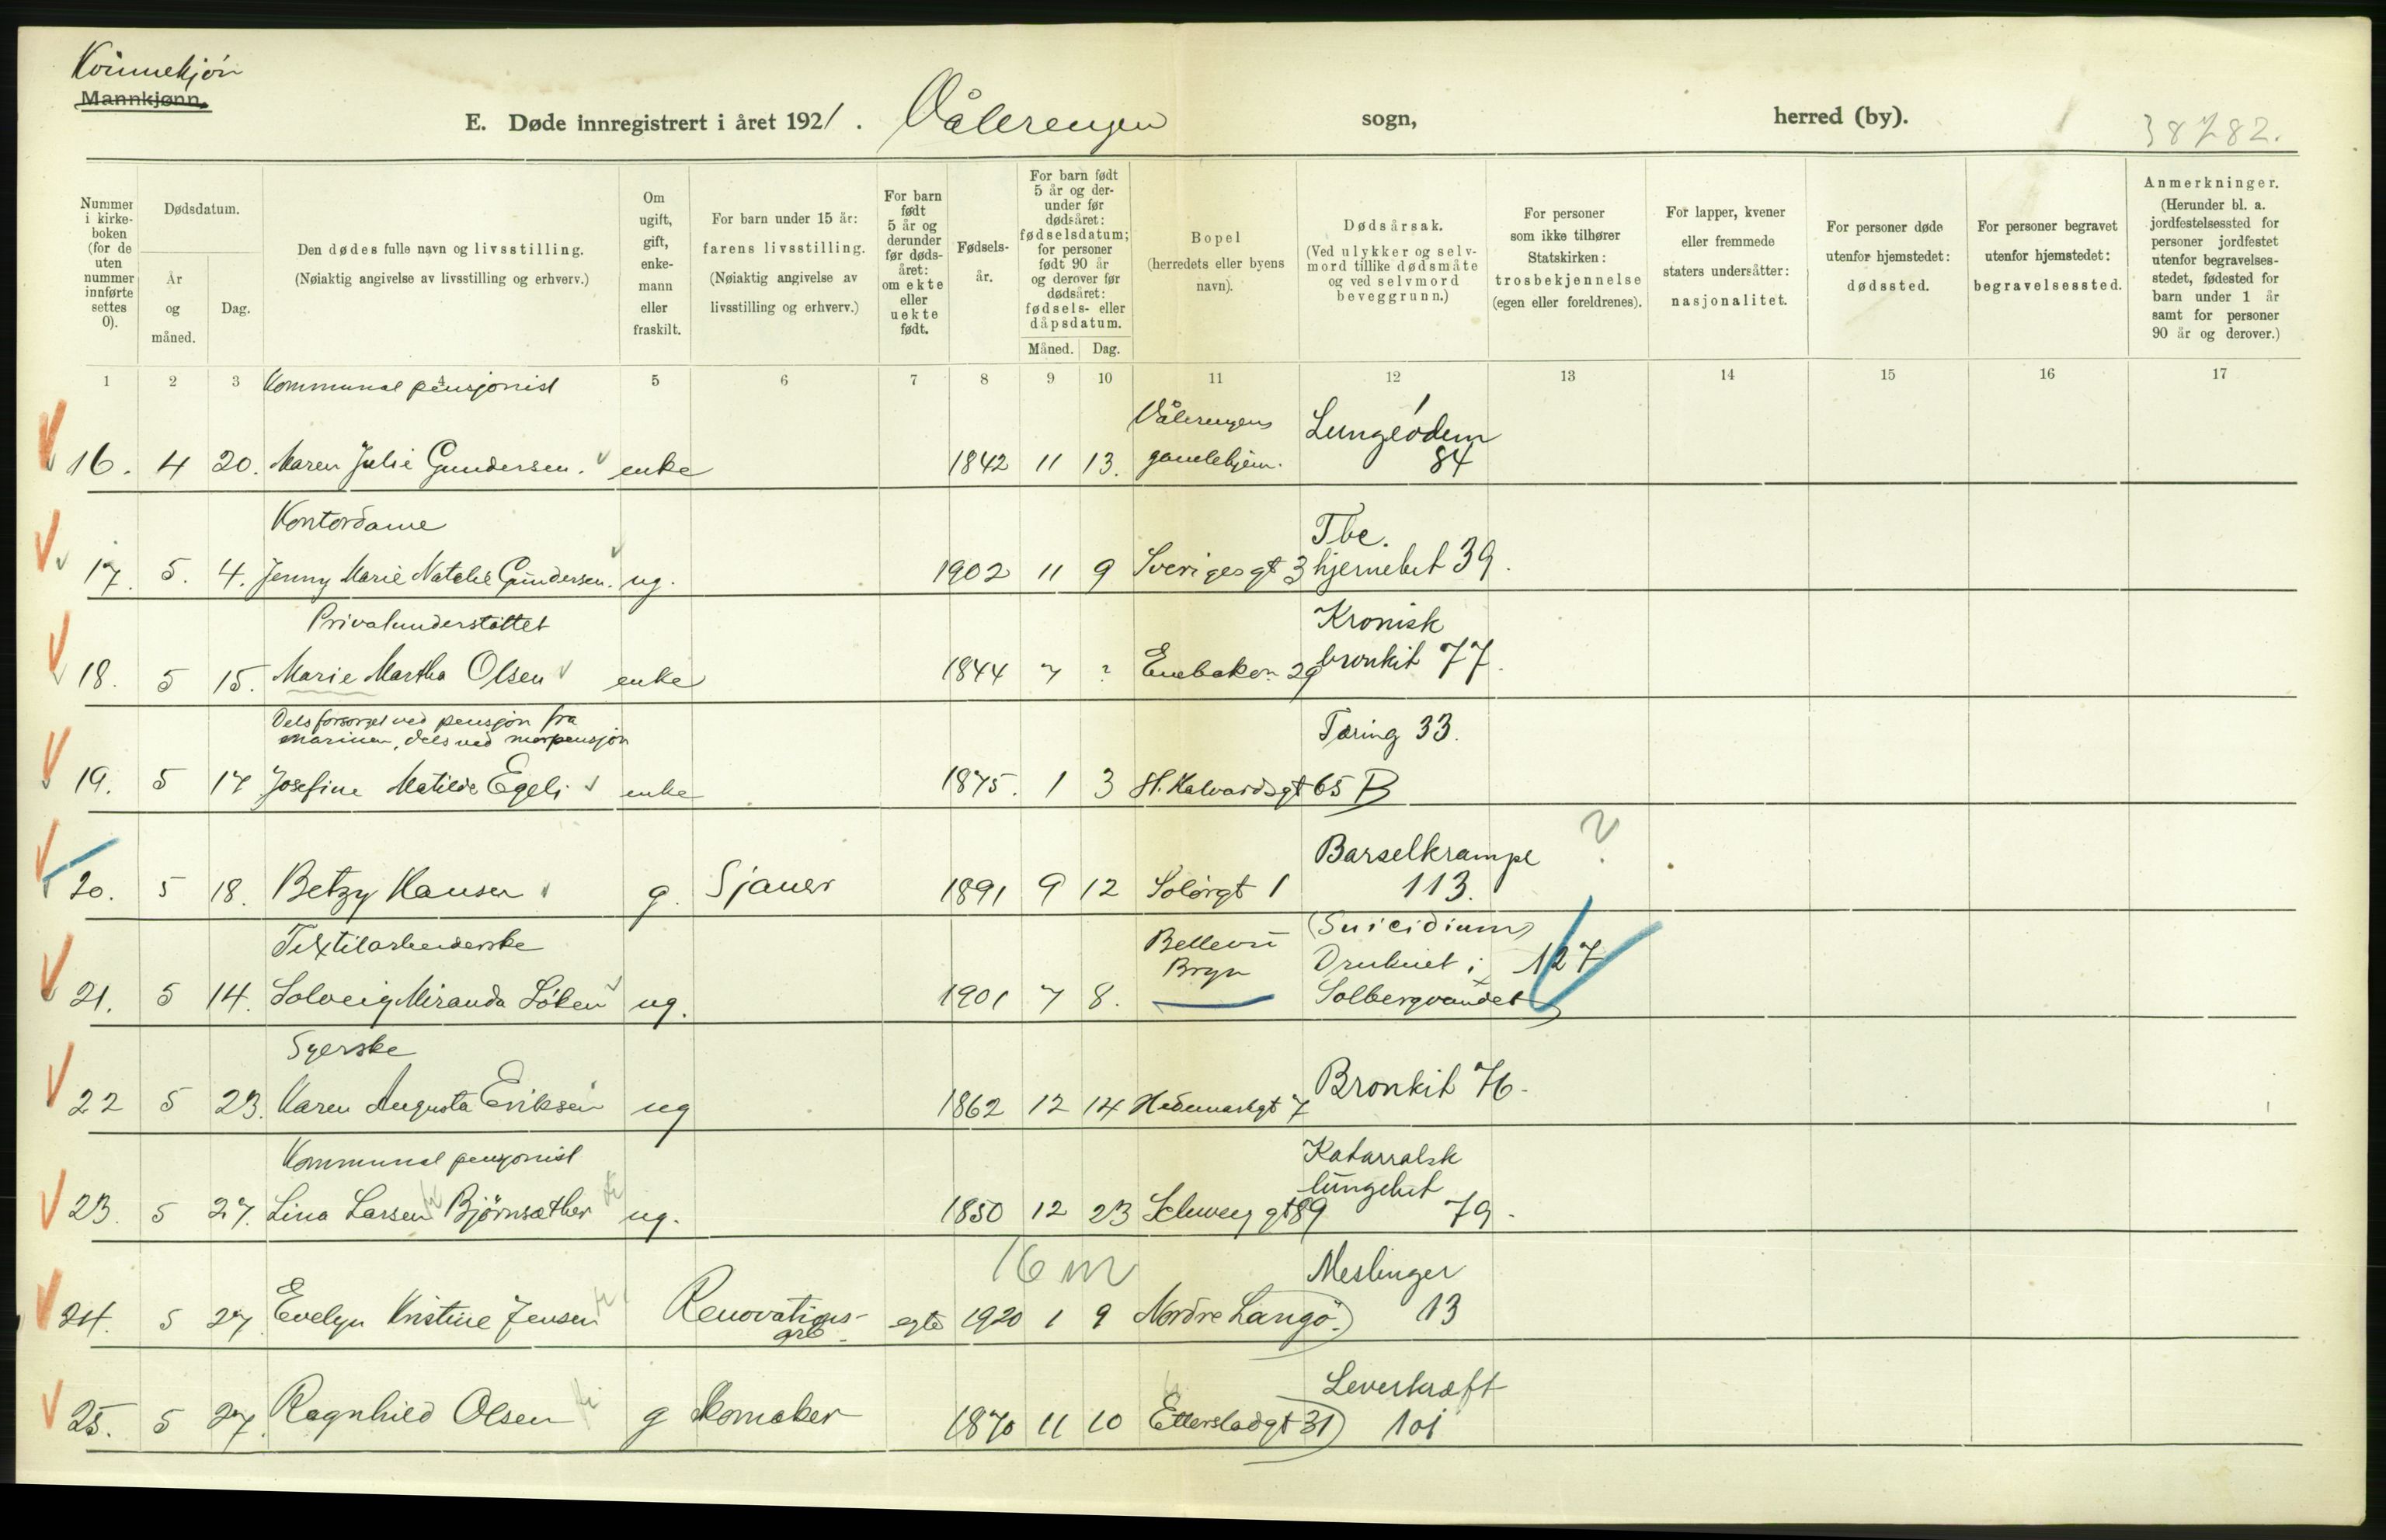 Kvinnekjön
Mannkjønn.
E. Døde innregistrert i året 1921. Vålerengen sogn, herred (by). 38782.
Nummer i kirkeboken (for de uten nummer innførte settes 0).
Dødsdatum.
År og måned.
Dag.
Den dødes fulle navn og livsstilling.
(Nøiaktig angivelse av livsstilling og erhverv.)
Om ugift, gift, enkemann eller fraskilt.
For barn under 15 år: farens livsstilling.
(Nøiaktig angivelse av livsstilling og erhverv.)
For barn født 5 år og derunder før dødsåret: om ekte eller uekte født.
Fødselsår.
For barn født 5 år og derunder før dødsåret: fødselsdatum; for personer født 90 år og derover før dødsåret: fødsels- eller dåpsdatum.
Måned. Dag.
Bopel (herredets eller byens navn).
Dødsårsak.
(Ved ulykker og selvmord tillike dødsmåte og ved selvmord beveggrunn.)
For personer som ikke tilhører Statskirken: trosbekjennelse (egen eller foreldrenes).
For lapper, kvener eller fremmede staters undersåtter: nasjonalitet.
For personer døde utenfor hjemstedet: dødssted.
For personer begravet utenfor hjemstedet: begravelsessted.
Anmerkninger.
(Herunder bl. a. jordfestelsessted for personer jordfestet utenfor begravelsesstedet, fødested for barn under 1 år samt for personer 90 år og derover.)
1 2 3 4 5 6 7 8 9 10 11 12 13 14 15 16 17
Kommunal pensjonist
Vålerengens Lungeödem
16. 4 20. Maren Julie Gundersen. enke 1842 11 13. gamlehjem. 84
Kontordame
Tbc.
17. 5. 4. Jenny Marie Natalie Gundersen. ug. 1902 11 9 Sverigesgt 3 hjernebet 39.
Privatunderstøttet
Kronisk
18. 5 15. Marie Martha Olsen enke 1844 7 ? Enebakv. 29 bronkit 77.
Dels forsørget ved pensjon fra
marinen, dels ved morpensjon
Tæring 33.
19. 5 17 Josefine Matilde Egeli enke 1875. 1 3 St. Halvardsgt 65 B
Barselkrampe ?
20. 5 18. Betzy Hansen g. Sjauer 1891 9 12 Solørgt 1 113.
Textilarbeiderske
Bellevü (Suicidium)
Bryn Druknet i 127
21. 5 14. Solveig Miranda Löken ug. 1901 7 8. Solbergvandet)
Syerske
22 5 23. Karen Augusta Eriksen ug 1862 12 14 Hedemarkgt 7 Bronkit 76.
Kommunal pensjonist
Katarralsk
lüngebet
23. 5 27. Lina Larsen Bjørnsæther ug. 1850 12 23 Schweig gt 89 79.
16 m Meslinger
24. 5 27. Evelyn Kristine Jensen Renovations- egte 1920 1 9 Nordre Langö.) 13
arb.
Leverkræft
25. 5 27. Ragnhild Olsen g Skomaker 1870 11 10 Etterstadgt 31) 101